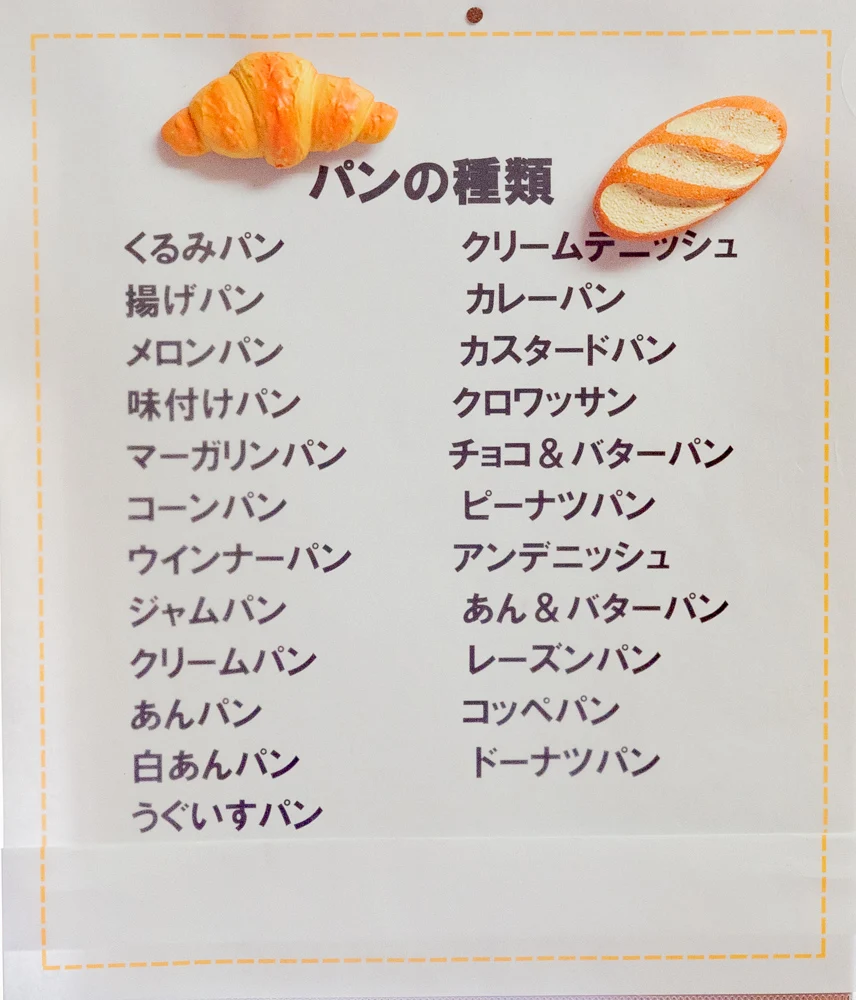 パンの種類
くるみパン
揚げパン
メロンパン
味付けパン
マーガリンパン
コーンパン
ウインナーパン
ジャムパン
クリームパン
あんパン
白あんパン
うぐいすパン
クリームデニッシュ
カレーパン
カスタードパン
クロワッサン
チョコ&バターパン
ピーナツパン
アンデニッシュ
あん&バターパン
レーズンパン
コッペパン
ドーナツパン